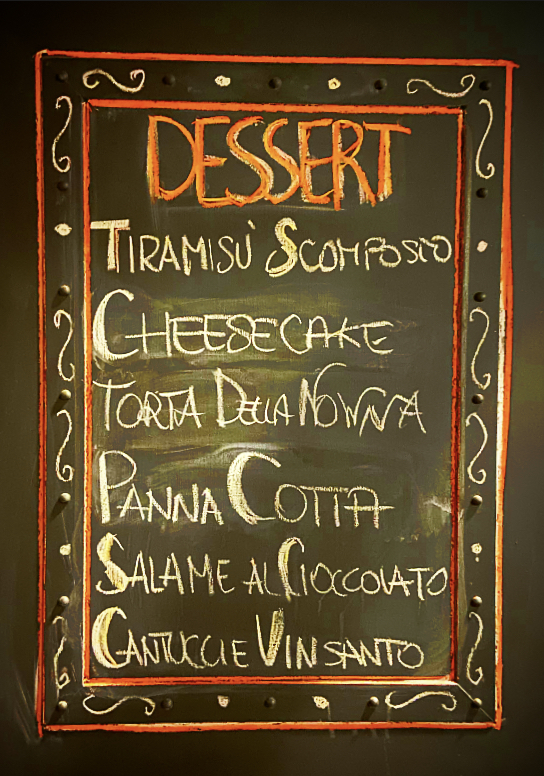 DESSERT
TIRAMISÙ SCOMPOSTO
CHEESECAKE
TORTA DELLA NONNA
PANNA COTTA
SALAME AL CIOCCOLATO
CANTUCCI E VIN SANTO